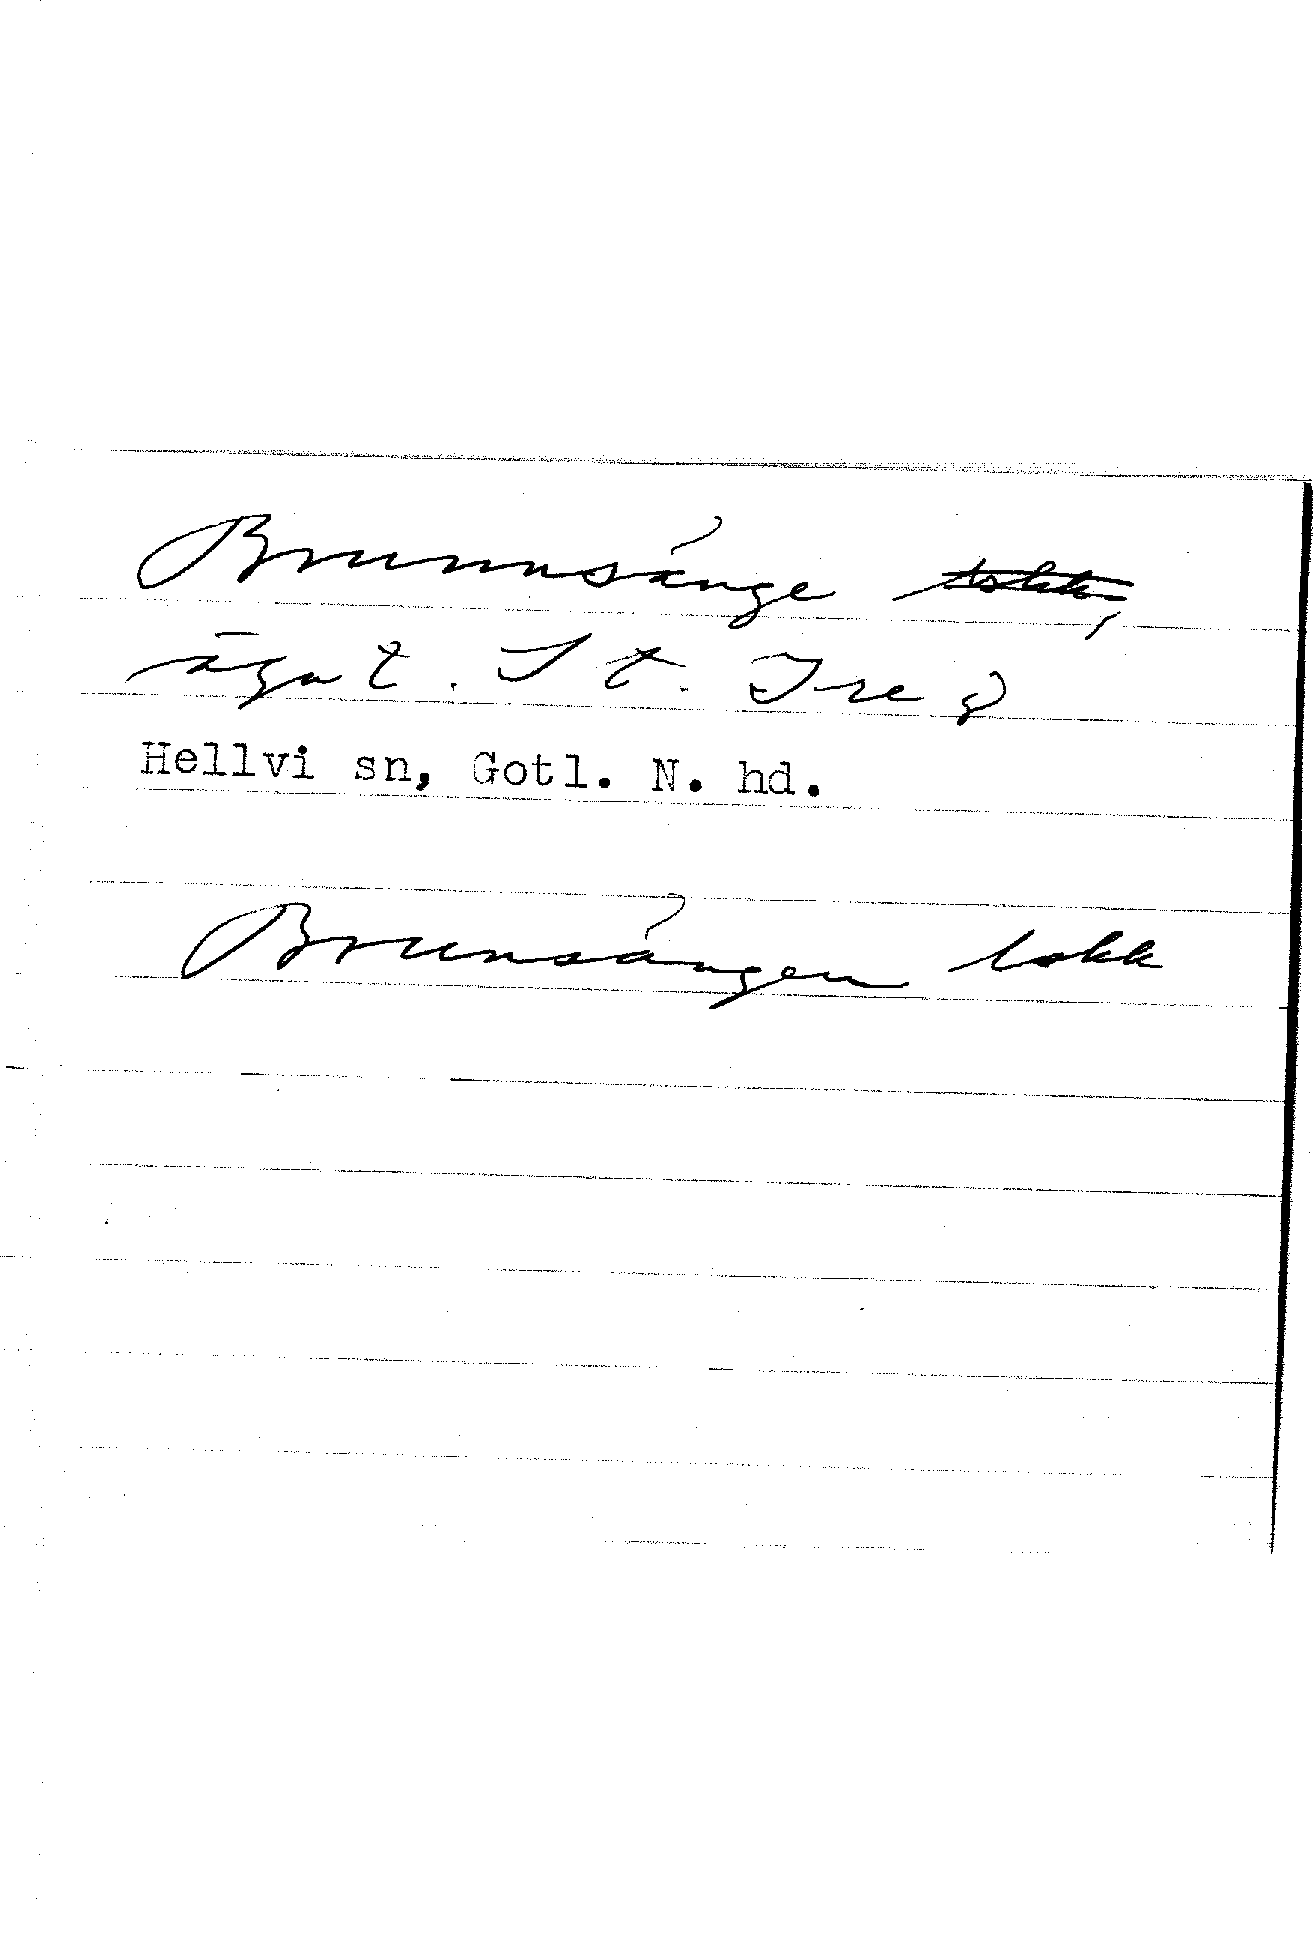 Brunnsänge ~~lokk~~,
äga t. St. Ire g
Hellvi sn, Gotl. N. hd.
Brunsängen lokk